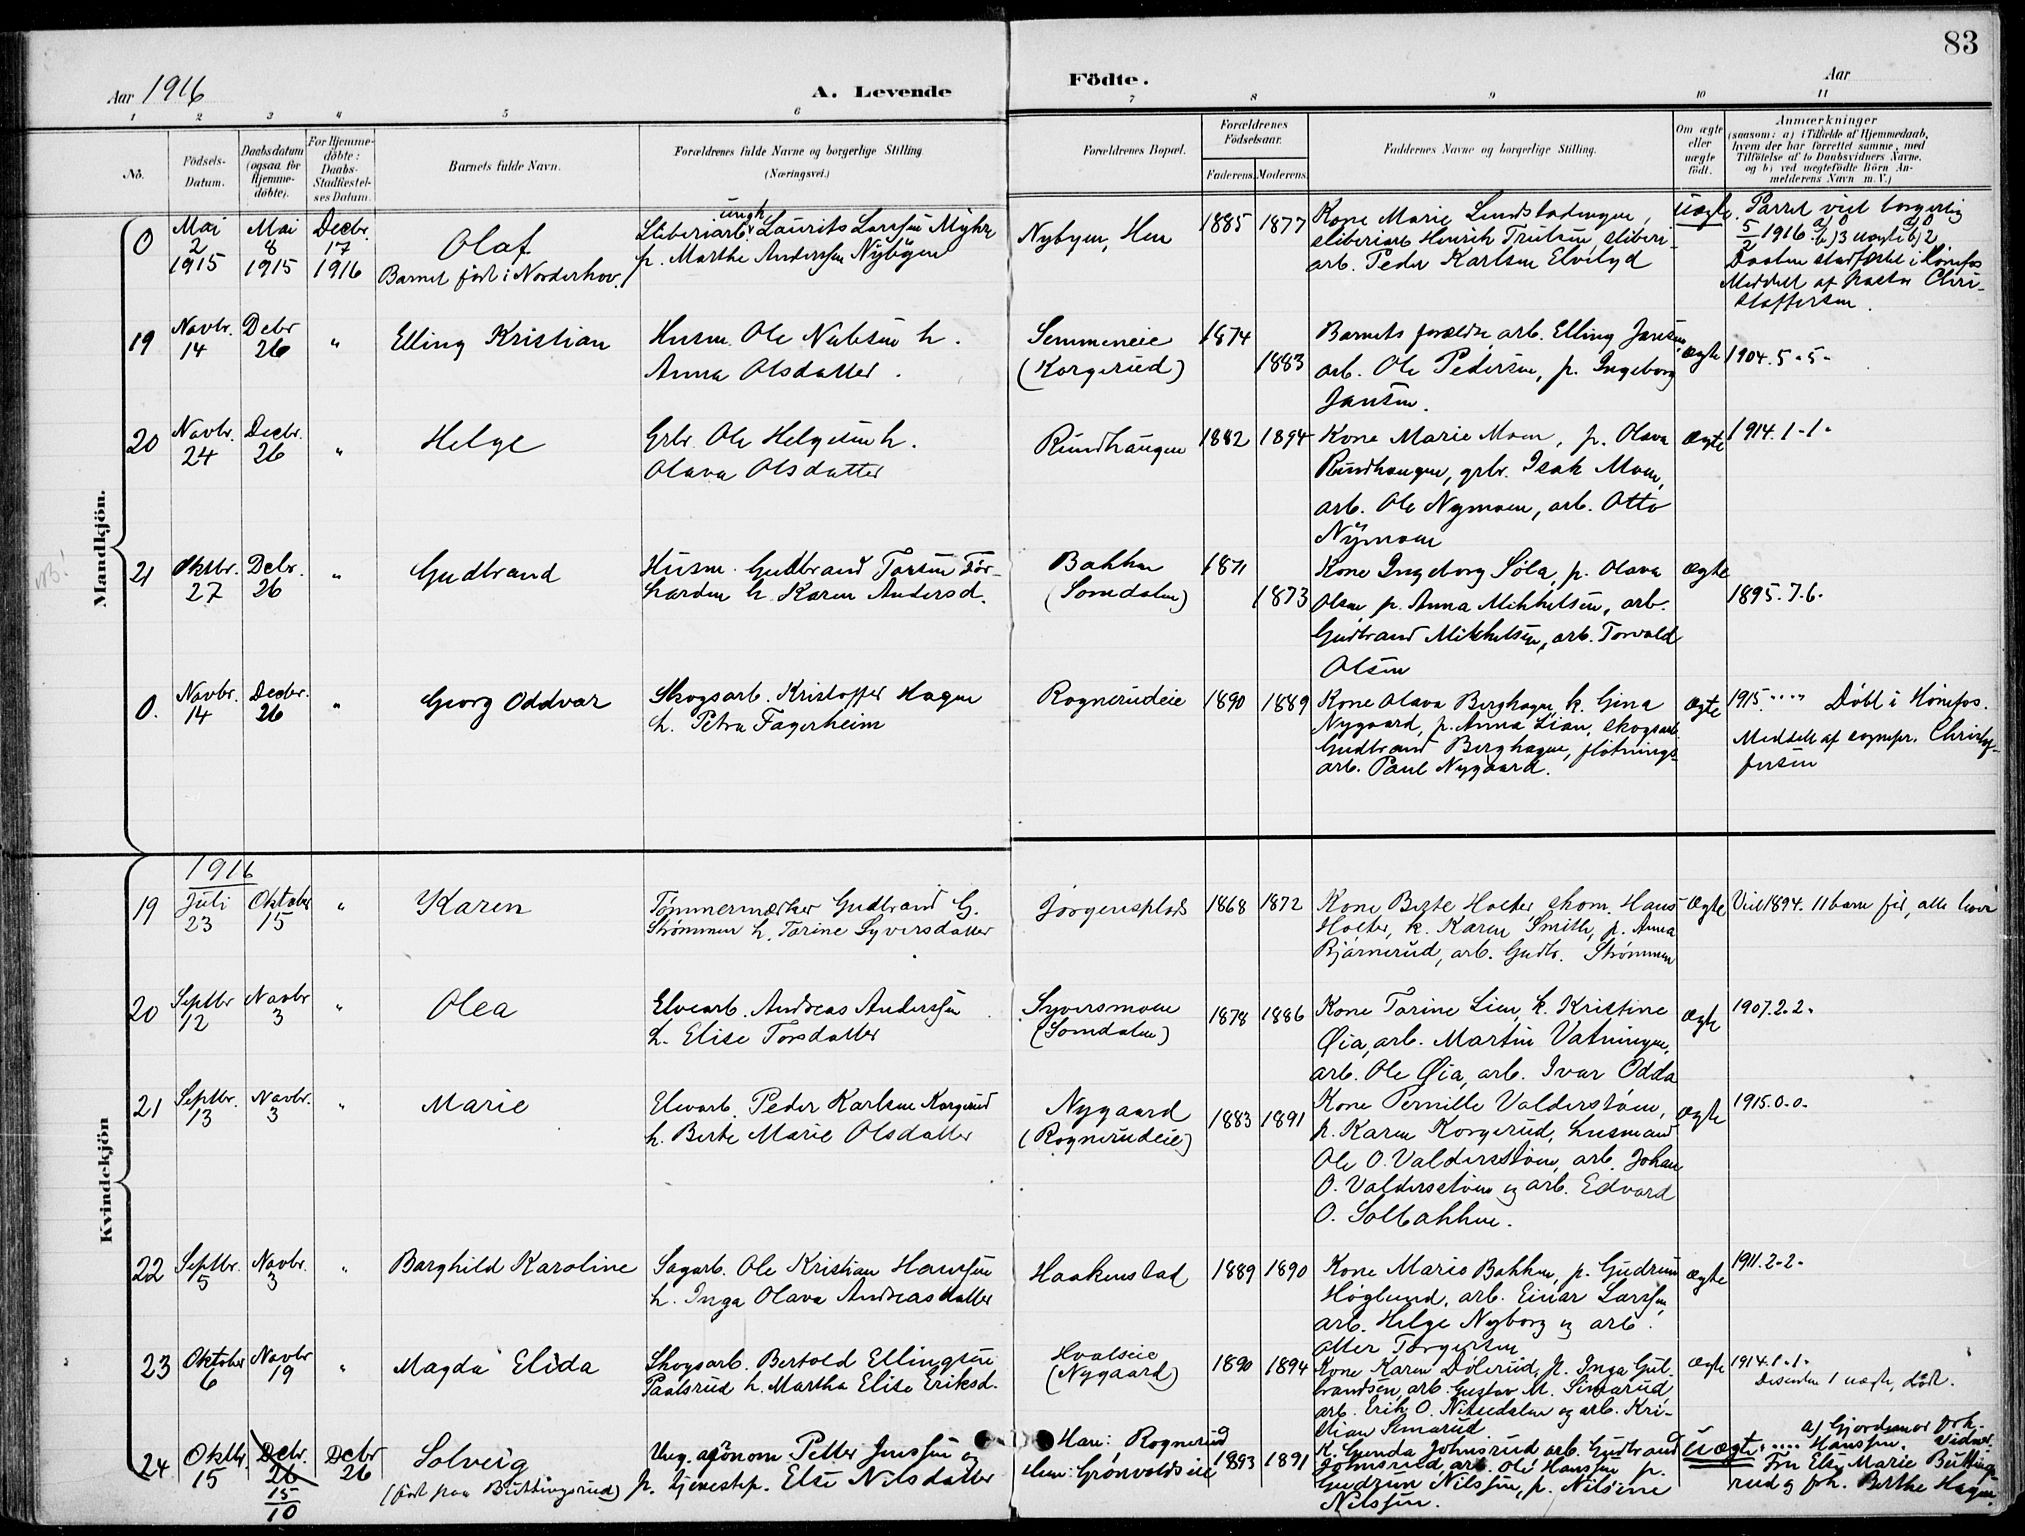 83
Aar 1916
A. Levende Födte.
Aar
1 2 3 4 5 6 7 8 9 10 11
No.
Födsels-
Datum.
Daabsdatum
(ogsaa for
Hjemme-
döbte).
For Hjemme-
döbte:
Daabs-
Stadfæstel-
ses Datum.
Barnets fulde Navn.
Forældrenes fulde Navne og borgerlige Stilling
(Næringsvei.)
Forældrenes Bopæl.
Forældrenes
Födselsaar.
Faderens. Moderens.
Faddernes Navne og borgerlige Stilling.
Om ægte
eller
uægte
födt.
Anmærkninger
(saasom: a) i Tilfælde af Hjemmedaab,
hvem der har forrettet samme, med
Tilföielse af to Daabsvidners Navne,
og b) ved uegtefödte Börn An-
melderens Navn m. V.)
Mandkjön.
0
Mai
2
1915
Mai
8
1915
Decbr.
17
1916
Olaf
Barnet født i Norderhov.
ungk
Sliberiarb. Laurits Larssen Myhre
p. Marthe Anderssen Nybyen
Nybyen, Hen
1885 1877
Kone Marie Lundstadengen,
sliberiarb Henrik Trulsen, sliberi-
arb. Peder Karlsen Elvelyd
Uægte
Parret viet borgerlig
5/2 1916 a) 0 b) 3 uægte a) 0 b) 2
Daaben stadfæstet i Hønefos
Meddelt af Pastor Chri-
stoffersen.
19
Novbr.
14
Debr
26
"
Elling Kristian
Husm. Ole Nubsen h.
Anna Olsdatter.
Semmeneie
(Korgerud)
1874
1883
Barnets forældre, arb. Elling Jansen,
arb. Ole Pedersen, p. Ingeborg
Jansen.
ægte
1904. 5 - 5 -
20
Novbr.
24
Decbr.
26
"
Helge
Grbr. Ole Helgesen h.
Olava Olsdatter
Rundhaugen
1882 1894
Kone Marie Moen, p. Olava
Rundhaugen, grbr. Isak Moen,
arb. Ole Nymoen, arb. Otto
Nymoen
ægte
1914. 1 - 1 -
21
Oktbr.
27
Debr.
26
"
Gudbrand
Husm. Gudbrand Torsen Tør-
h. Karen Andersd.
Bakken
(Somdalen)
1871
1873
Kone Ingeborg Søla, p. Olava
Olsen, p. Anna Mikkelsen, arb.
Gudbrand Mikkelsen, arb. Torvald
Olsen
ægte
1895. 7. 6.
0.
Novbr.
14
Decbr.
26
"
Georg Oddvar
Skogsarb. Kristoffer Hagen
h. Petra Fagerheim
Rognerudeie
1890 1889
Kone Olava Berghagen, k. Gina
Nygaard, p. Anna Lian, skogsarb.
Gudbrand Berghagen, fløtnings-
arb. Paul Nygaard.
ægte
1915. " " Døbt i Hønefos.
Meddelt af sognepr. Christof-
fersen
Kvindekjön
1916
19
Juli
23
Oktober
15
"
Karen
Tømmermærker Gudbrand G.
Strømmen h. Tarine Syversdatter
Jørgensplads
1868 1872
Kone Berte Holter skom. Hans
Holter, k. Karen Smith, p. Anna
Bjørnerud, arb. Gudbr. Strømmen
ægte
Viet 1894. 11 barn før, alle lever
20
Septbr
12
Novbr
3
"
Olea
Elvearb. Andreas Anderssen
h. Elise Torsdatter
Syversmoen
(Somdalen)
1878 1886
Kone Tarine Lien, k. Kristine
Øia, arb. Martin Vatningen,
arb. Ole Øia, arb. Ivar Odda
ægte
1907. 2. 2.
21
Septbr.
13
Novbr.
3
"
Marie
Elvearb. Peder Karlsen Korgerud
h. Berte Marie Olsdatter
Nygaard
(Rognerudeie)
1883 1891
Kone Pernille Valderstøen,
p. Karen Korgerud, husmand
Ole O. Valderstøen, arb. Johan
O. Valderstøen og arb. Edvard
O. Solbakken.
ægte
1915. 0. 0.
22
Septbr.
5
Novbr.
3
"
Borghild Karoline
Sagarb. Ole Kristian Hansen
h. Inga Olava Andreasdatter
Haakenstad
1889 1890
Kone Marie Bakken, p. Gudrun
Høglund, arb. Einar Larssen,
arb. Helge Nyborg og arb.
Atter Torgersen
ægte
1911. 2. 2.
23
Oktober
6
Novbr
19
"
Magda Elida
Skogsarb. Bertold Ellingsen
Paalsrud h. Martha Elise Eriksd.
Hvalseie
(Nygaard)
1890 1894
Kone Karen Dølerud, p. Inga Gul-
brandsen, arb. Gustav M. Semerud
arb. Erik O. og arb. Kri-
stian Semerud.
ægte
1914. 1. 1.
Desuden 1 uægte, død.
24
Oktbr.
15
Debr.
26
15
10
Debr
26
Solveig
(født paa Buttingsrud)
Ung. agronom Petter Jenssen og
p. tjenestep. Else Nilsdatter
Han: Rognerud
Hun: Grønvoldseie
1893 1891
K. Gunda Johnsrud arb. Gudbrand
Johnsrud, arb. Ole Hanssen p.
Gudrun Nilssen, p. Nilsine
Nilssen.
Uægte
a) Gjordemor frk.
Hanssen. Vidner:
Fru Else Marie Buttings-
rud og frk. Berthe Hagen.